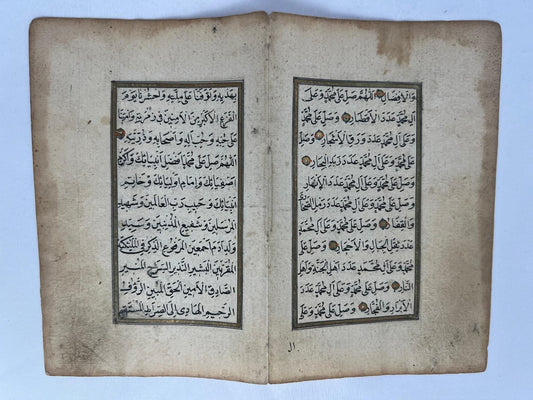 والافضال اللهم صل على محمد وعلى
ال محمد عدد الاقطار وصل على محمد
وعلى ال محمد عدد ورق الاشجار وصل
على محمد وعلى ال محمد عدد زبد البحار
وصل على محمد وعلى ال محمد عدد الانهار
وصل على محمد وعلى ال محمد عدد رمل
والقفار وصل على محمد وعلى ال محمد
عدد ثقل الجبال والاحجار وصل على
محمد وعلى ال محمد عدد اهل الجنة واهل
النار وصل على محمد وعلى ال محمد عدد
الابرار والفجار وصل على محمد وعلى
ال
بهديه وتوفنا على ملته واحشرنا يوم
الفزع الاكبر من الامنين في زمرته وامتنا
على حبه وحب اله واصحابه وذريته
اللهم صل على محمد افضل انبيائك واكرم
اصفيائك وامام اوليائك وخاتم
انبيائك وحبيب رب العالمين وشهيد
المرسلين وشفيع المذنبين وسيد
ولد ادم اجمعين المرفوع الذكر في الملئكة
المقربين البشير النذير السراج المنير
الصادق الامين الحق المبين الرؤف
الرحيم الهادي الى الصراط المستقيم